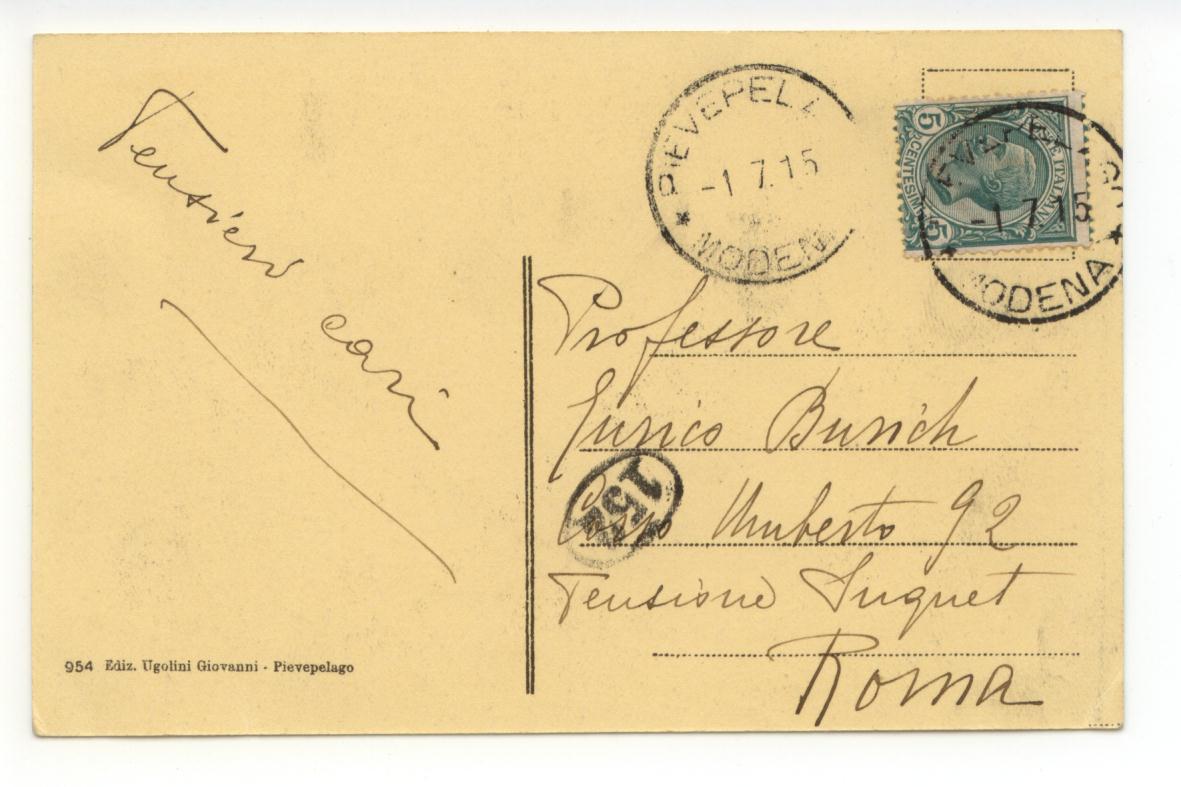 Pensieri
cari
954 Ediz. Ugolini Giovanni - Pievepelago
PIEVEPELA
-1 7.15
* MODENA
POSTE ITALIANE
5 CENTESIMI 5
-1 7.15
* MODENA *
Professore
Enrico Burich
Corso Umberto 92
Pensione Suquet
Roma
152